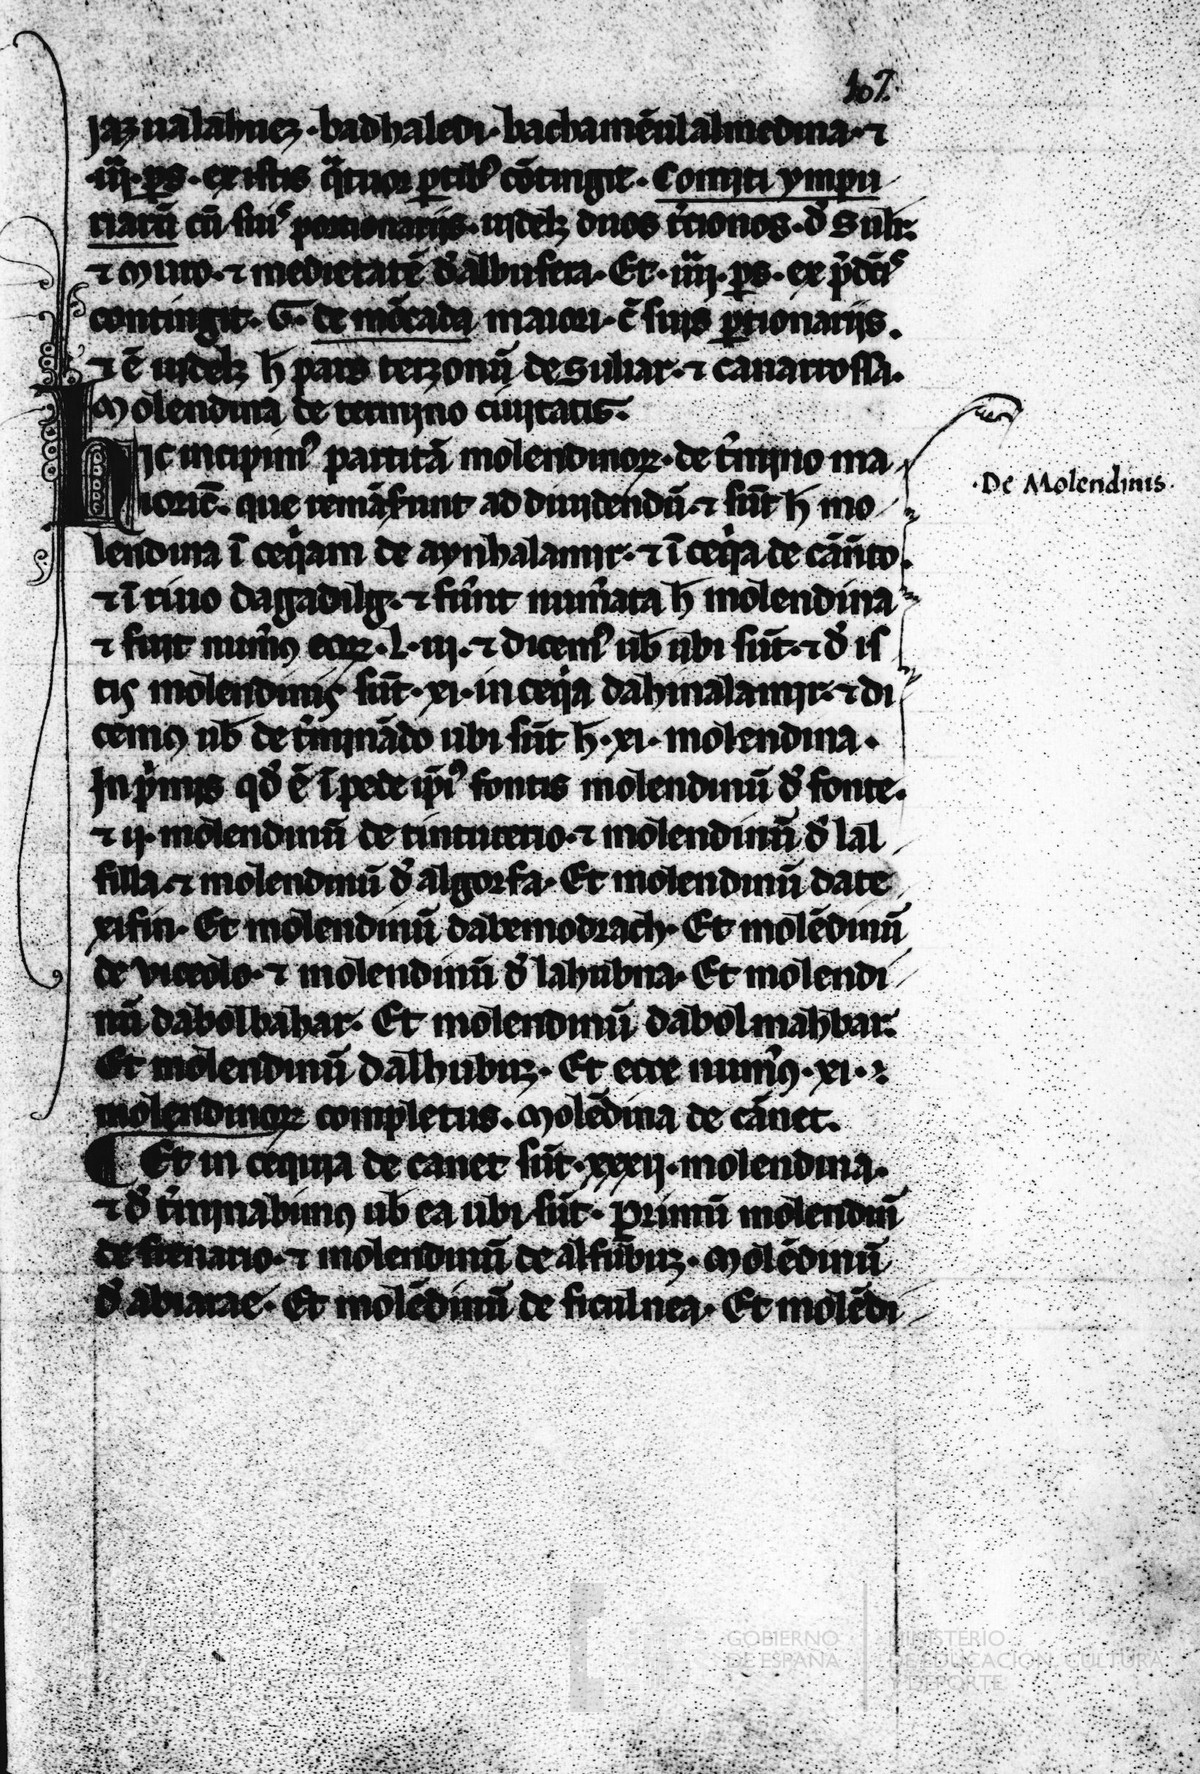 107.
jaz ualalhuez · badhaledi · bachamēulalmedina · ⁊
·iiij· ps · ex istis q̄tuor ptib⁹ cōtingit · Comiti ympu
riarū cū suis porcionarijs · uidelz duos t'cionos · d' Suliz
⁊ Muro · ⁊ medietatē d' albufera · Et · iiij · ps · ex p̄dcīs
contingit · G · de mōcada maiori · c̄ suijs ptionarijs .
⁊ ē uidelz h̄ pars terzonū de Suliar · ⁊ canarrossa .
Molendina de termino ciuitatis .
Hic incipim⁹ partitā molendinoꝝ · de t'mino ma
ioric̄ . que remāserunt ad diuidendū · ⁊ sūt h̄ mo
lendina ī ceq̄am de aynhalamir · ⁊ ī ceq̄a de cān̄to .
⁊ ī riuo dagadilg · ⁊ fu'nt num̄ata h̄ molendina
⁊ fuit num̄9 eoꝝ · L · iii · ⁊ dicem⁹ ub̄ ubi sūt · ⁊ d' is
tis molendinis sūt · xi · in ceq̄a dahinalamir · ⁊ di
cem9 ub̄ det'minādo ubi sūt h̄ · xi · molendina ·
In p̄mis qd' ē ī pede ip̄i⁹ fontis molendinū d' fonte .
⁊ ii · molendinū de tinturerio · ⁊ molendinū d' lal
filla · ⁊ molendinū d' algorfa · Et molendinū date
xifin · Et molendinū dabemodrach · Et molēdinū
de viceolo · ⁊ molendinū d' lahubna · Et molendi
nū dabolbahar · Et molendinū dabolmahbar .
Et molendinū dalhubuz · Et ecce num̄9 · xi ·
molendinoꝝ completus . Molēdina de cānet .
¶ Et in cequia de canet sūt · xxxii · molendina .
⁊ d't'minabim9 ub̄ ea ubi sūt · Primū molendiū
de frenario · ⁊ molendinū de alfubuz · Molēdinū
d' abiarae · Et molēdinū de ficulnea · Et molēdi
· De Molendinis ·
GOBIERNO DE ESPAÑA
MINISTERIO DE EDUCACIÓN, CULTURA Y DEPORTE